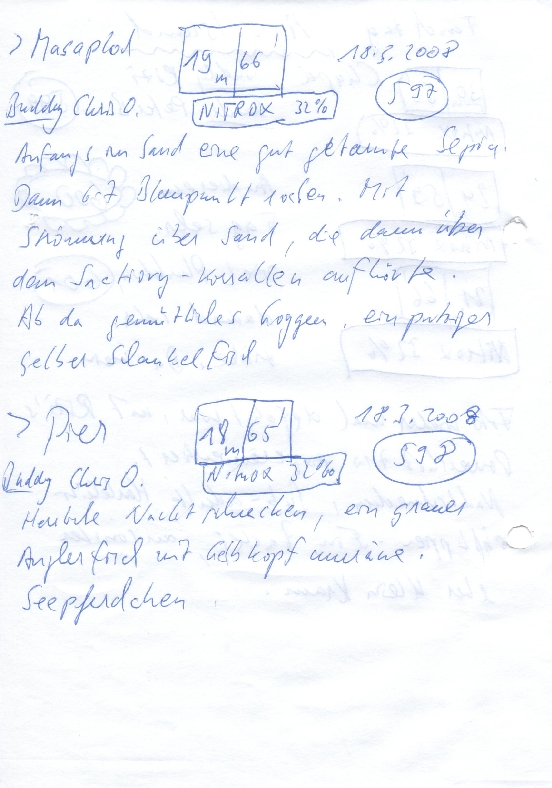 > Masaplod 19 m 66' 18.3.2008
Buddy Chris O. NITROX 32% 597
Anfangs im Sand eine gut getarnte Sepia.
Dann 6-7 Blaupunktrochen. Mit
Strömung über Sand, die dann über
dem Sanctuary-Korallen aufhörte.
Ab da gemütliches, ein putziger
gelber Schaukelfisch
> Pier 18 m 65' 18.3.2008
Buddy Chris O. Nitrox 32% 598
Nacktschnecken, ein grauer
Anglerfisch mit Gelbkopfmuräne.
Seepferdchen.